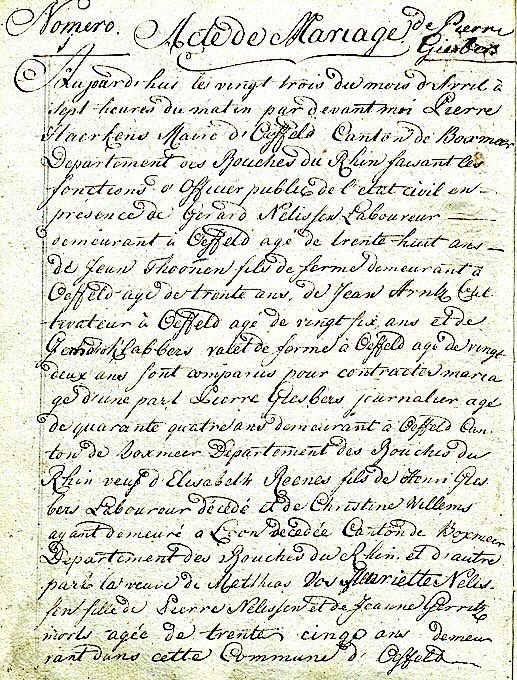 Nomero. Acte de Mariage de Pierre
Giesbers
Aujourd'hui les vingt trois du mois d'Avril à
sept heures du matin par devant moi Pierre
Staerkens Maire d'Oeffeld Canton de Boxmeer
Departement des Bouches du Rhin faisant les
fonctions d'Officier public de l'etat civil en
presence de Gerard Nelissen Laboureur
demeurant à Oeffeld agé de trente huit ans
de Jean Thoonen fils de ferme demeurant à
Oeffeld agé de trente ans, de Jean Arntz Cul
tivateur à Oeffeld agé de vingt six ans et de
Labbers valet de ferme à Oeffeld agé de vingt
deux ans sont comparus pour contracter maria
ge d'une part Pierre Giesbers journalier agé
de quarante quatre ans demeurant à Oeffeld Can
ton de Boxmeer Departement des Bouches du
Rhin veuf d'Elisabeth Reenes fils de Henri Gies
bers Laboureur décédé et de Christine Willems
ayant demeuré a decedée Canton de Boxmeer
Departement des Bouches du Rhin et d'autre
part la veuve de Matthias Vos Henriette Nelis-
sen fille de Pierre Nelissen et de Jeanne Gerritz
morts agée de trente cinq ans demeu
rant dans cette Commune d'Oeffeld